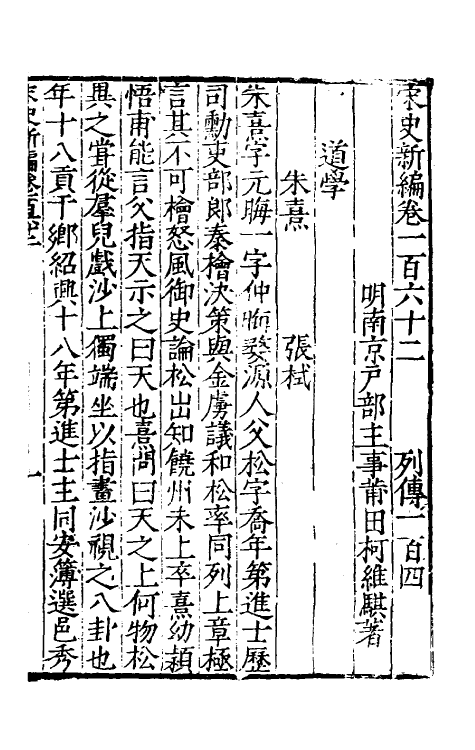 宋史新編卷一百六十二　列傳一百四
明南京戶部主事莆田柯維騏著
道學
朱熹　張栻
朱熹字元晦一字仲晦婺源人父松字喬年第進士歷
司勳吏部郎秦檜決策與金虜議和松率同列上章極
言其不可檜怒風御史論松出知饒州未上卒熹幼穎
悟甫能言父指天示之曰天也熹問曰天之上何物松
異之嘗從羣兒戲沙上獨端坐以指畫沙視之八卦也
年十八貢于鄉紹興十八年第進士主同安簿選邑秀
宋史新編卷
一